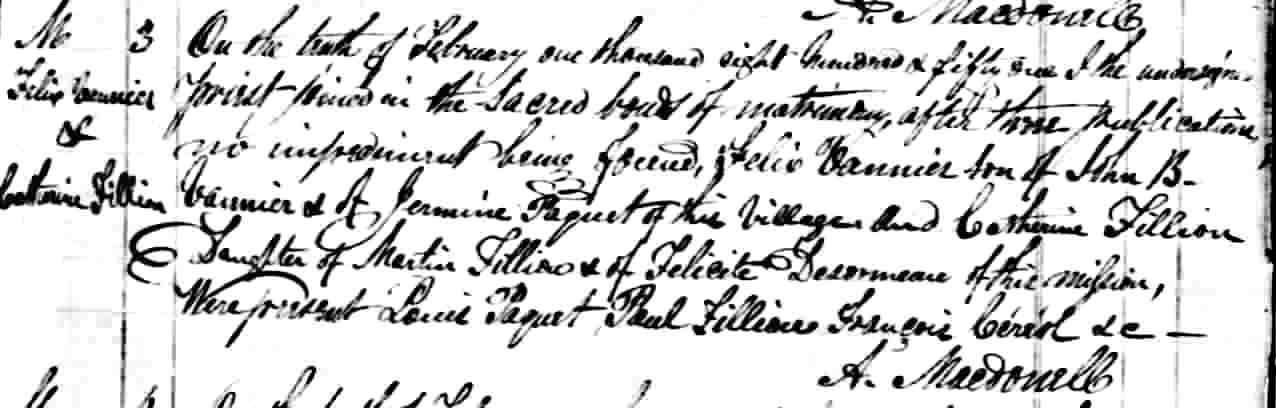 A. Macdonell
M 3 On the tenth of February one thousand eight hundred & fifty one I the undersign-
Felix Vannier priest joined in the Sacred bonds of matrimony, after three publications
& no impediment being found, Felix Vannier son of John B-
Catherine Fillion Vannier & of Jermine Paquet of this village and Catherine Fillion
Daughter of Martin Fillion & of Felicite Desormeau of this mission,
Were present Louis Paquet Paul Fillion François &c —
A. Macdonell